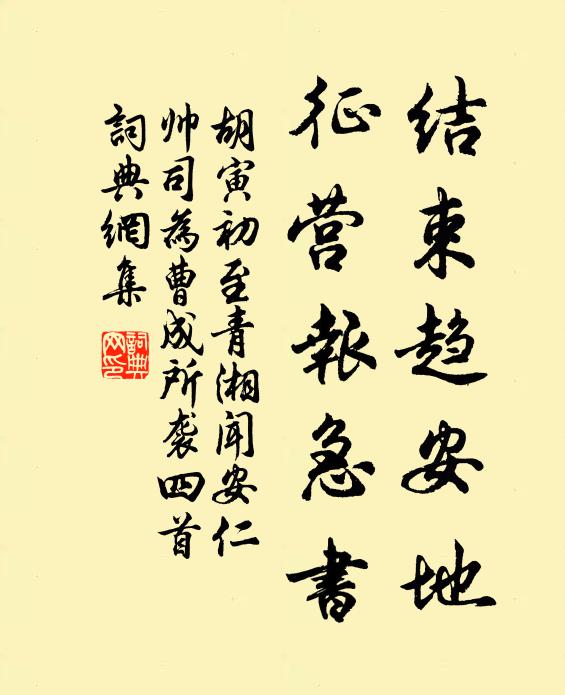 结束趋安地
征营報急書
胡寅初至青湘闻安仁
帅司為曹成所袭四首
詞典網集
詞典
网印